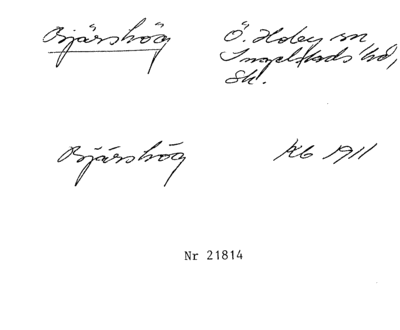 Bjärshög Ö. Hoby sn
Ingelstads hd,
Sk.
Bjärshög Kb 1911
Nr 21814